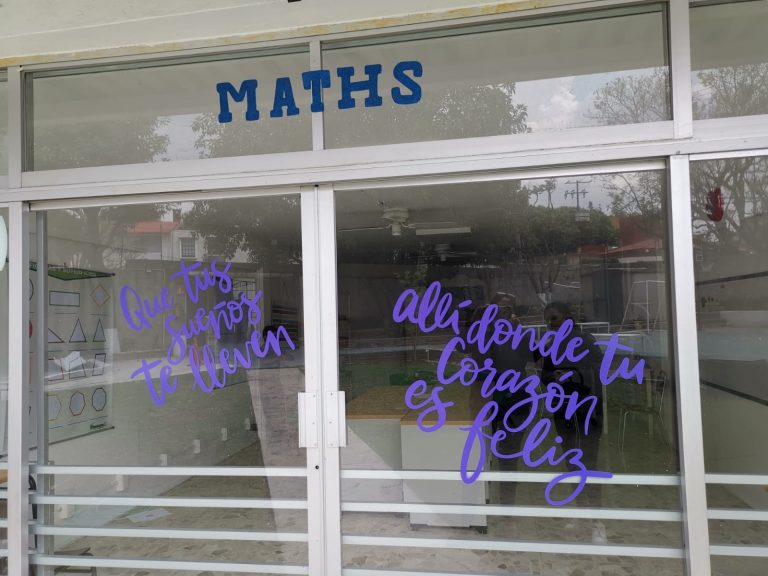 MATHS
Que tus
sueños
te lleven
allí donde tu
corazón
es feliz